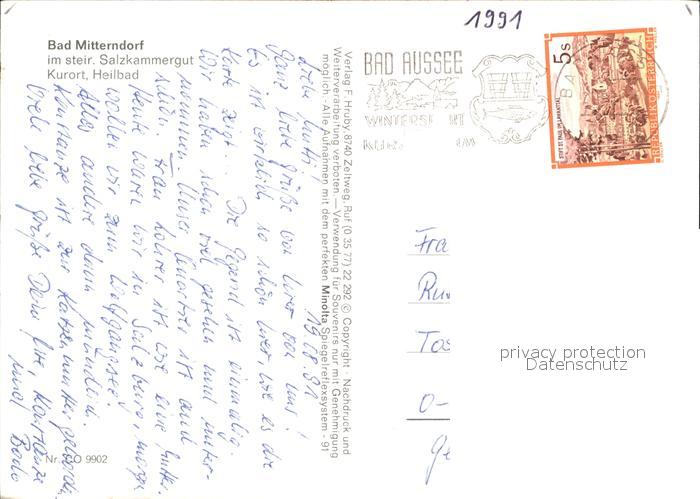 1991
Bad Mitterndorf
im steir. Salzkammergut
Kurort, Heilbad
BAD AUSSEE
WINTERSPORT
5s
STIFT ST. PAUL IM LAVANTTAL
REPUBLIK ÖSTERREICH
Verlag F. Hruby, 8740 Zeltweg, Ruf (0 35 77) 22 292 © Copyright - Nachdruck und
Weiterverarbeitung verboten. — Verwendung für Souvenirs nur mit Genehmigung
möglich - Alle Aufnahmen mit dem perfekten Minolta Spiegelreflexsystem - 91
19.08.91
Liebe Mutti!
Ganz liebe Grüße von hier von uns!
Es ist wirklich so schön hier wie es die
Karte zeigt. Die Gegend ist einmalig.
Wir haben schon viel gesehen und unter-
nommen. Unser Quartier ist auch
schön, Frau ist wie eine Mutter.
Heute waren wir in Salzburg, morgen
wollen wir zum Wolfgangsee.
Alles andere dann mündlich.
Konstanze ist zur Katzenmutter geworden.
Viele liebe Grüße Dein Konstanze
und Bodo
Nr. CO 9902
Fra
Ru
Tos
O-
Ge
privacy protection
Datenschutz